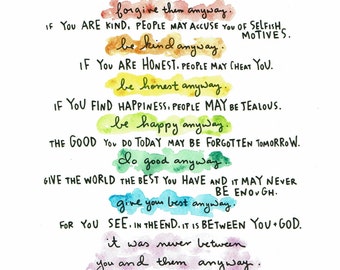 forgive them anyway.
IF YOU ARE KIND, PEOPLE MAY ACCUSE YOU OF SELFISH
MOTIVES.
be kind anyway.
IF YOU ARE HONEST, PEOPLE MAY CHEAT YOU.
be honest anyway.
IF YOU FIND HAPPINESS, PEOPLE MAY BE JEALOUS.
be happy anyway.
THE GOOD YOU DO TODAY MAY BE FORGOTTEN TOMORROW.
do good anyway.
GIVE THE WORLD THE BEST YOU HAVE AND IT MAY NEVER
BE ENOUGH.
give your best anyway.
FOR YOU SEE, IN THE END, IT IS BETWEEN YOU + GOD.
it was never between
you and them anyway.